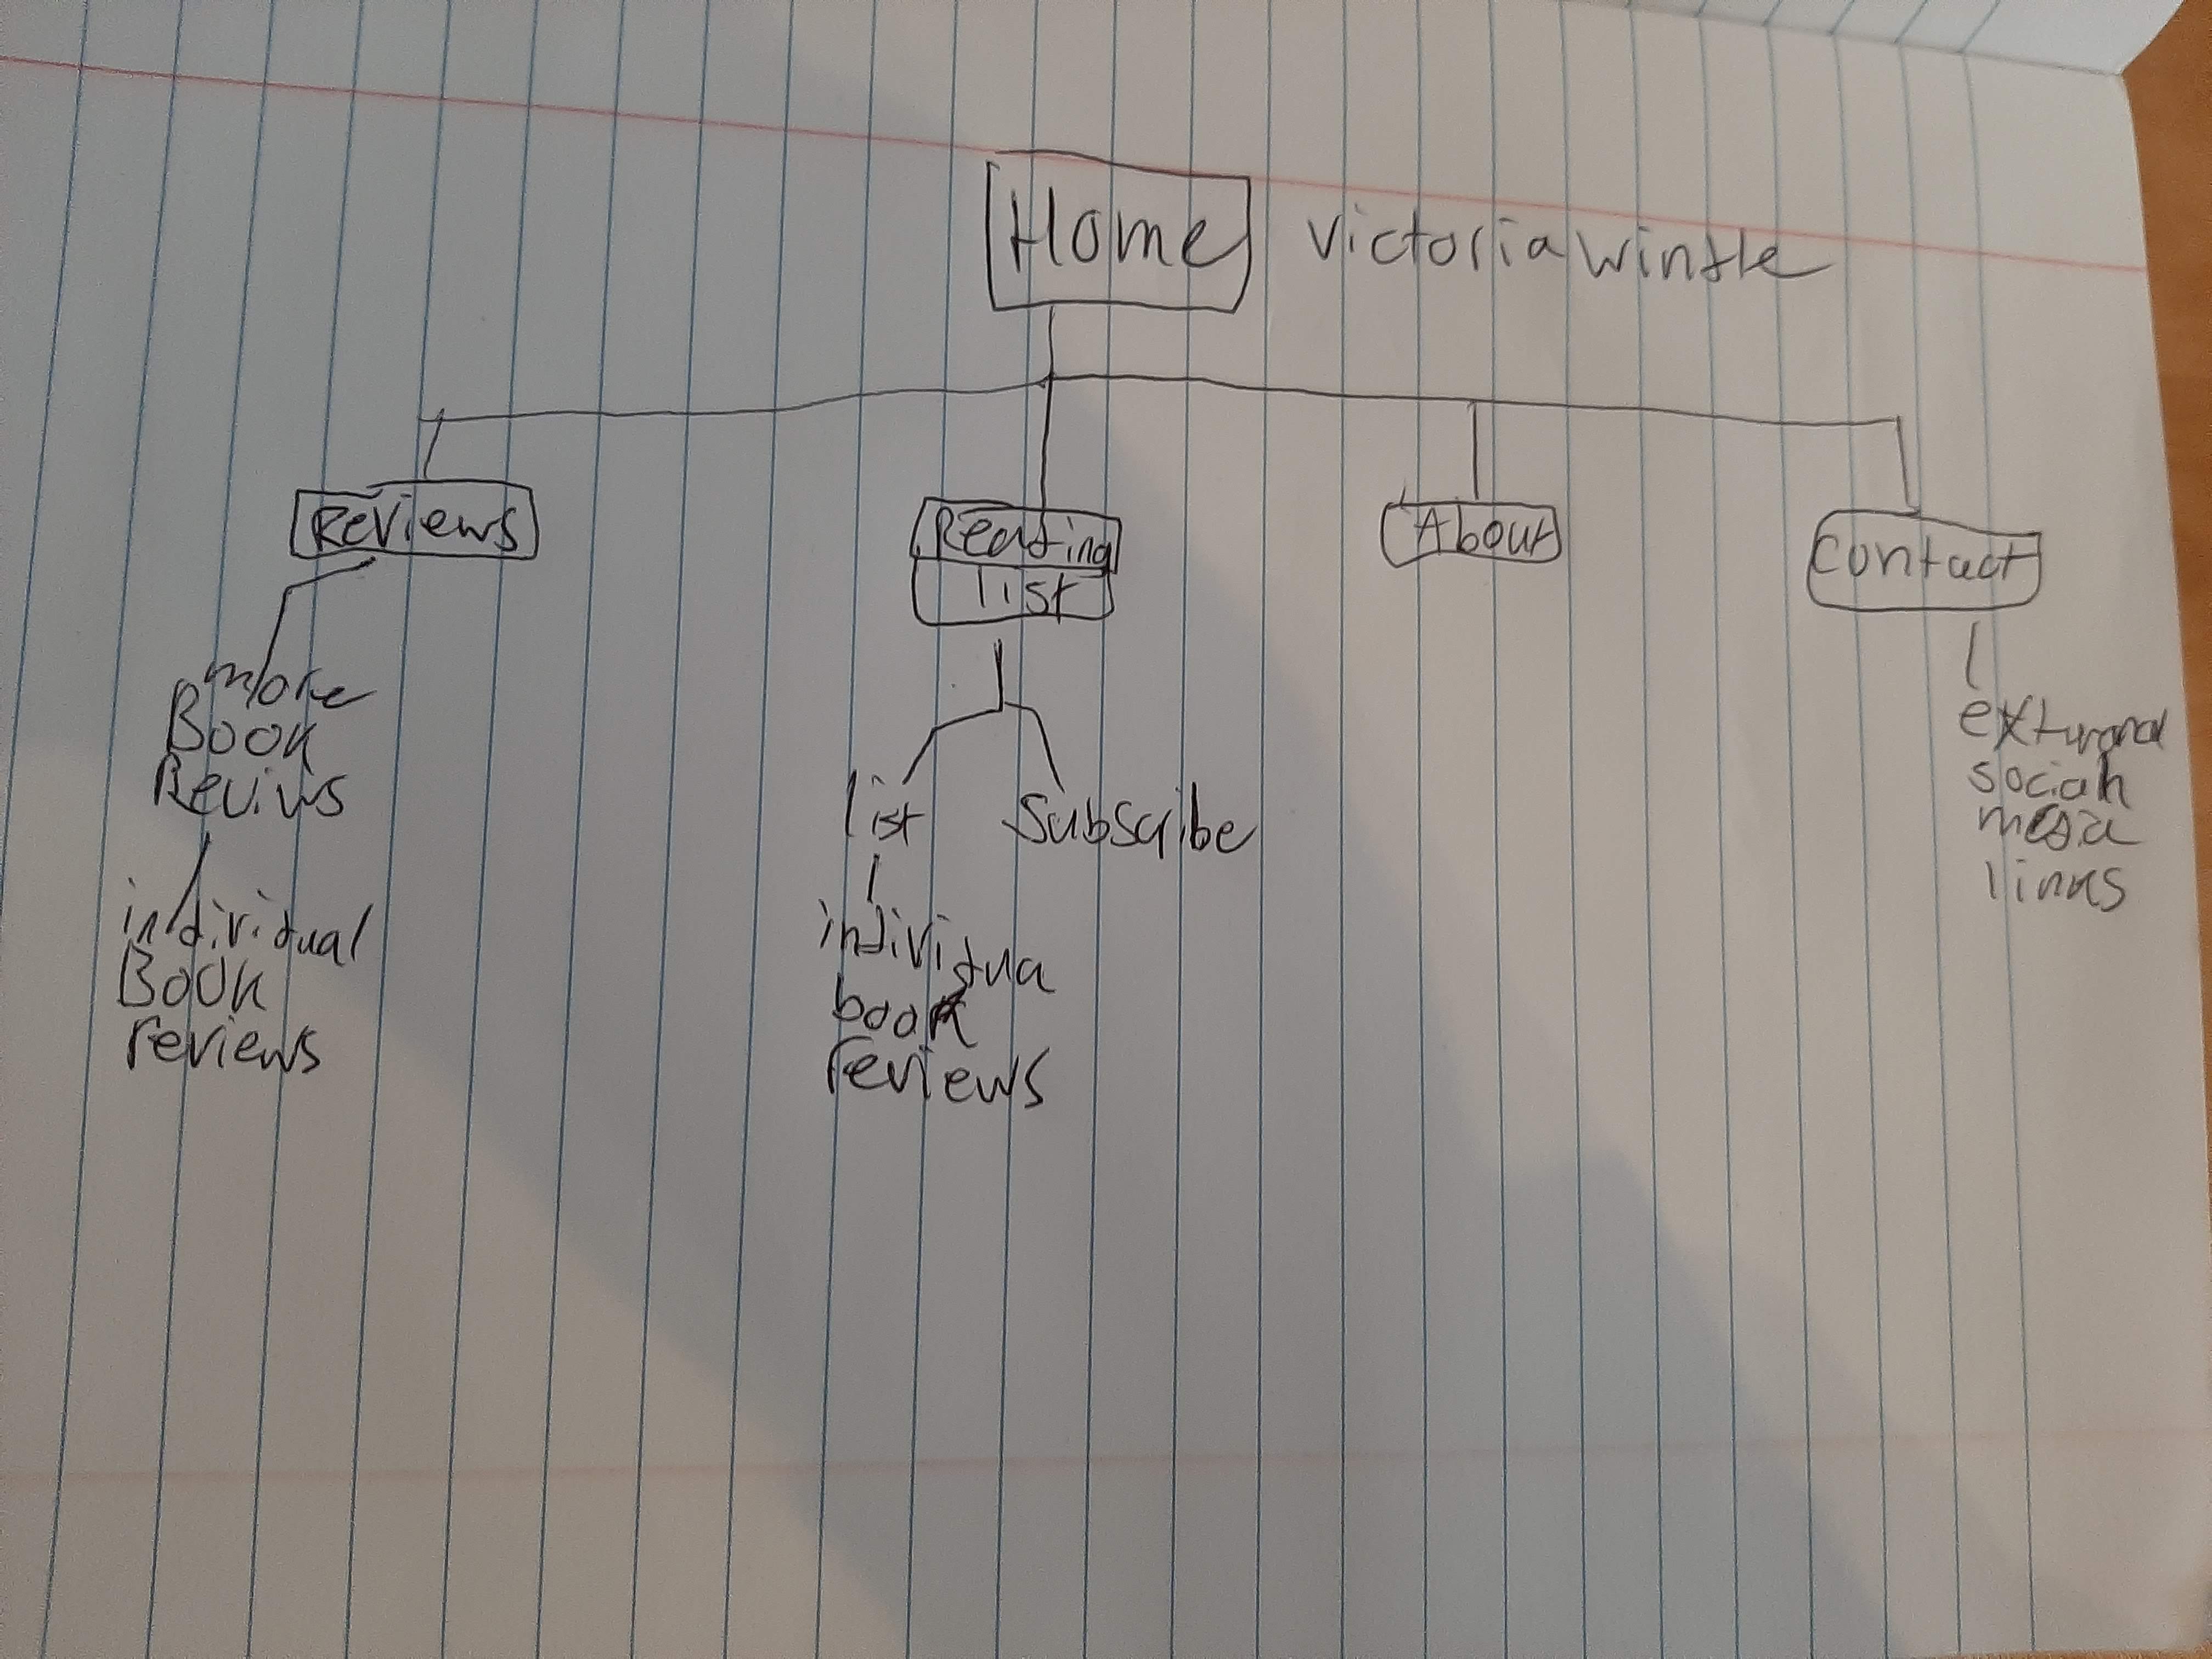 Home victoria wintle
Reviews
more
Book
Reviws
individual
Book
reviews
Reading
list
list
Subscribe
individua
book
reviews
About
Contact
external
social
media
links